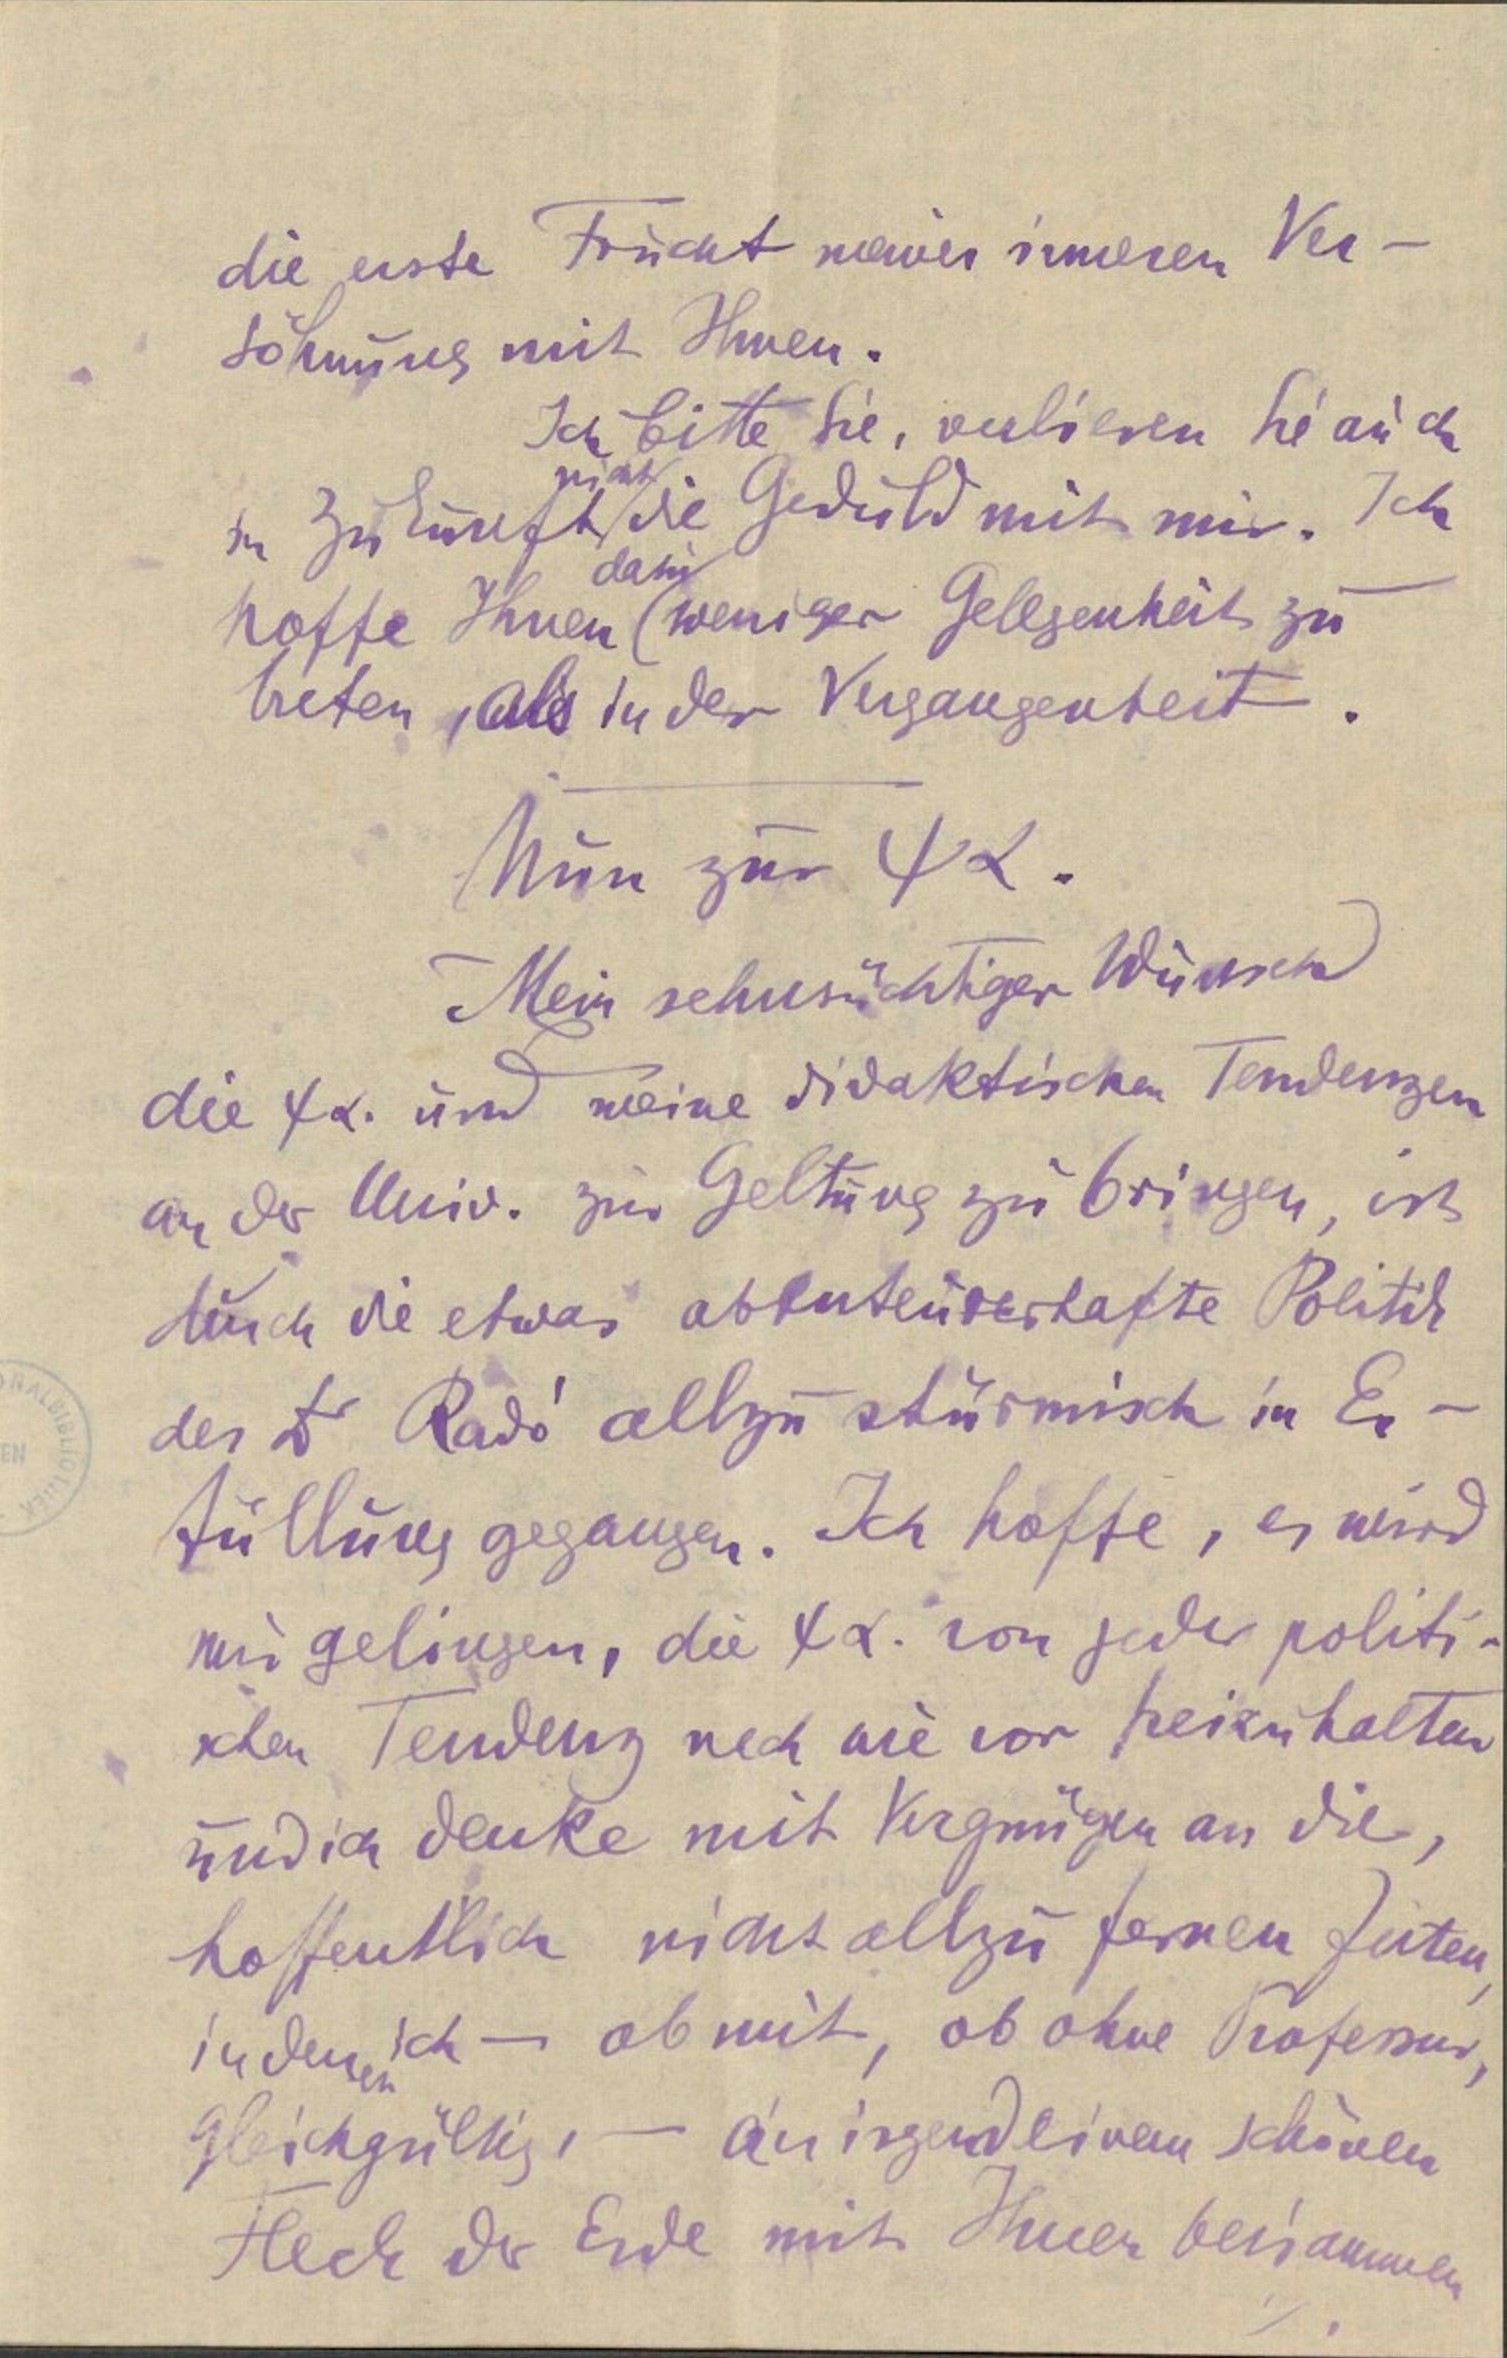 die erste Frucht meiner inneren Ver-
söhnung mit Ihnen.
Ich bitte Sie, verlieren Sie auch
nicht
in Zukunft die Geduld mit mir. Ich
dazu
hoffe Ihnen (weniger Gelegenheit zu
bieten, als in der Vergangenheit.
Nun zur ψα.
Mein sehnsüchtiger Wunsch
die ψα. und meine didaktischen Tendenzen
an der Univ. zur Geltung zu bringen, ist
durch die etwas abenteuerhafte Politik
des Dr Radó allzu stürmisch in Er-
füllung gegangen. Ich hoffe, es wird
mir gelingen, die ψα. von jeder politi-
schen Tendenz nach wie vor freizuhalten
und ich denke mit Vergnügen an die,
hoffentlich nicht allzu fernen Zeiten,
in denen ich — ob mit, ob ohne Professur,
gleichgültig, — an irgend einem schönen
Fleck der Erde mit Ihnen beisammen
./.